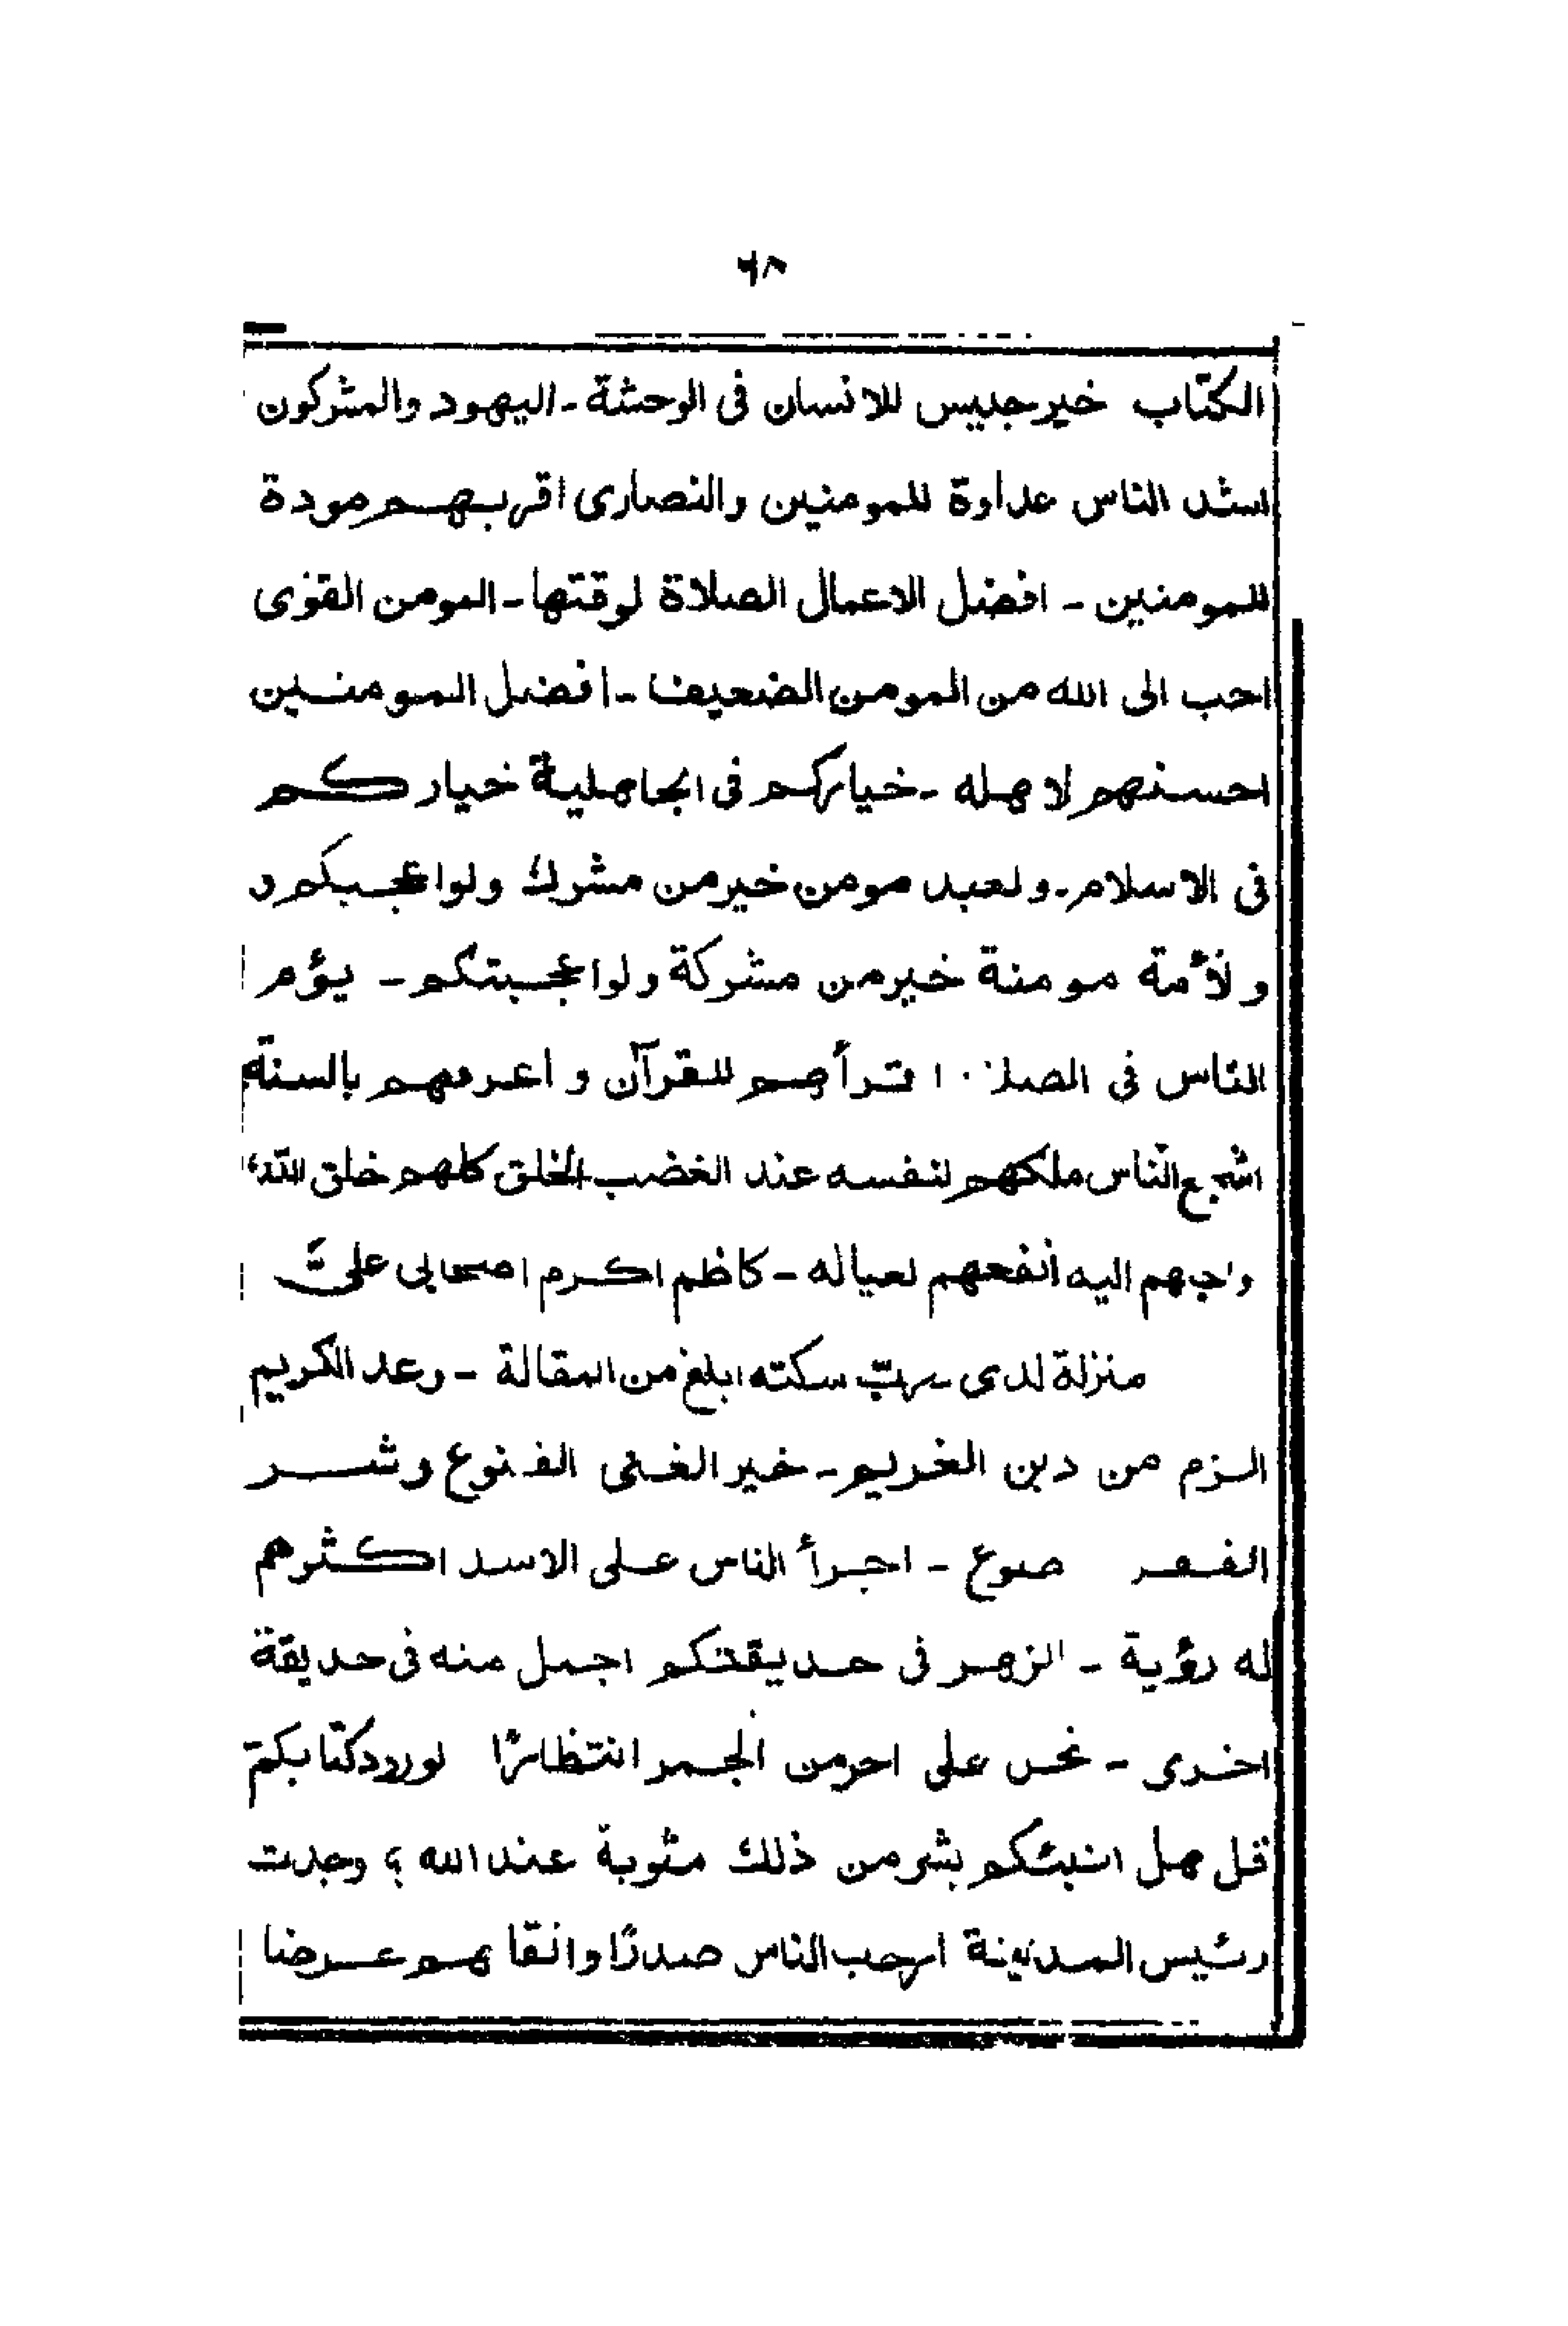 ٦٨
الكتاب خير جليس للانسان فى الوحشة - اليهود والمشركون
اشد الناس عداوة للمومنين والنصارى اقربهم مودة
للمومنين - افضل الاعمال الصلاة لوقتها - المومن القوى
احب الى الله من المومن الضعيف - افضل المومنين
احسنهم لاهله - خياركم فى الجاهلية خياركم
فى الاسلام - ولعبد مومن خير من مشرك ولو اعجبكم و
ولأمة مومنة خير من مشركة ولو اعجبتكم - يؤم
الناس فى اقرأهم للقرآن و اعرفهم بالسنة
اشجع الناس املكهم لنفسه عند الغضب الخلق كلهم خلق الله
واحبهم اليه أنفعهم لعياله - كاظم اكرم اصحابى علىّ
منزلة لدى ربّ سكته ابلغ من المقالة - وعد الكريم
الزم من دين الغريم - خير الغنى القنوع وشر
اجرأ الناس على الاسد اكثرهم
له رؤية - الزهر فى حديقتكم اجمل منه فى حديقة
اخرى - نحن على احر من الجمر انتظارًا لورود كتابكم
قل هل انبئكم بشر من ذلك مثوبة عند الله ؟ وجدت
رئيس المدينة ارحب الناس صدرًا وانقاهم عرضا